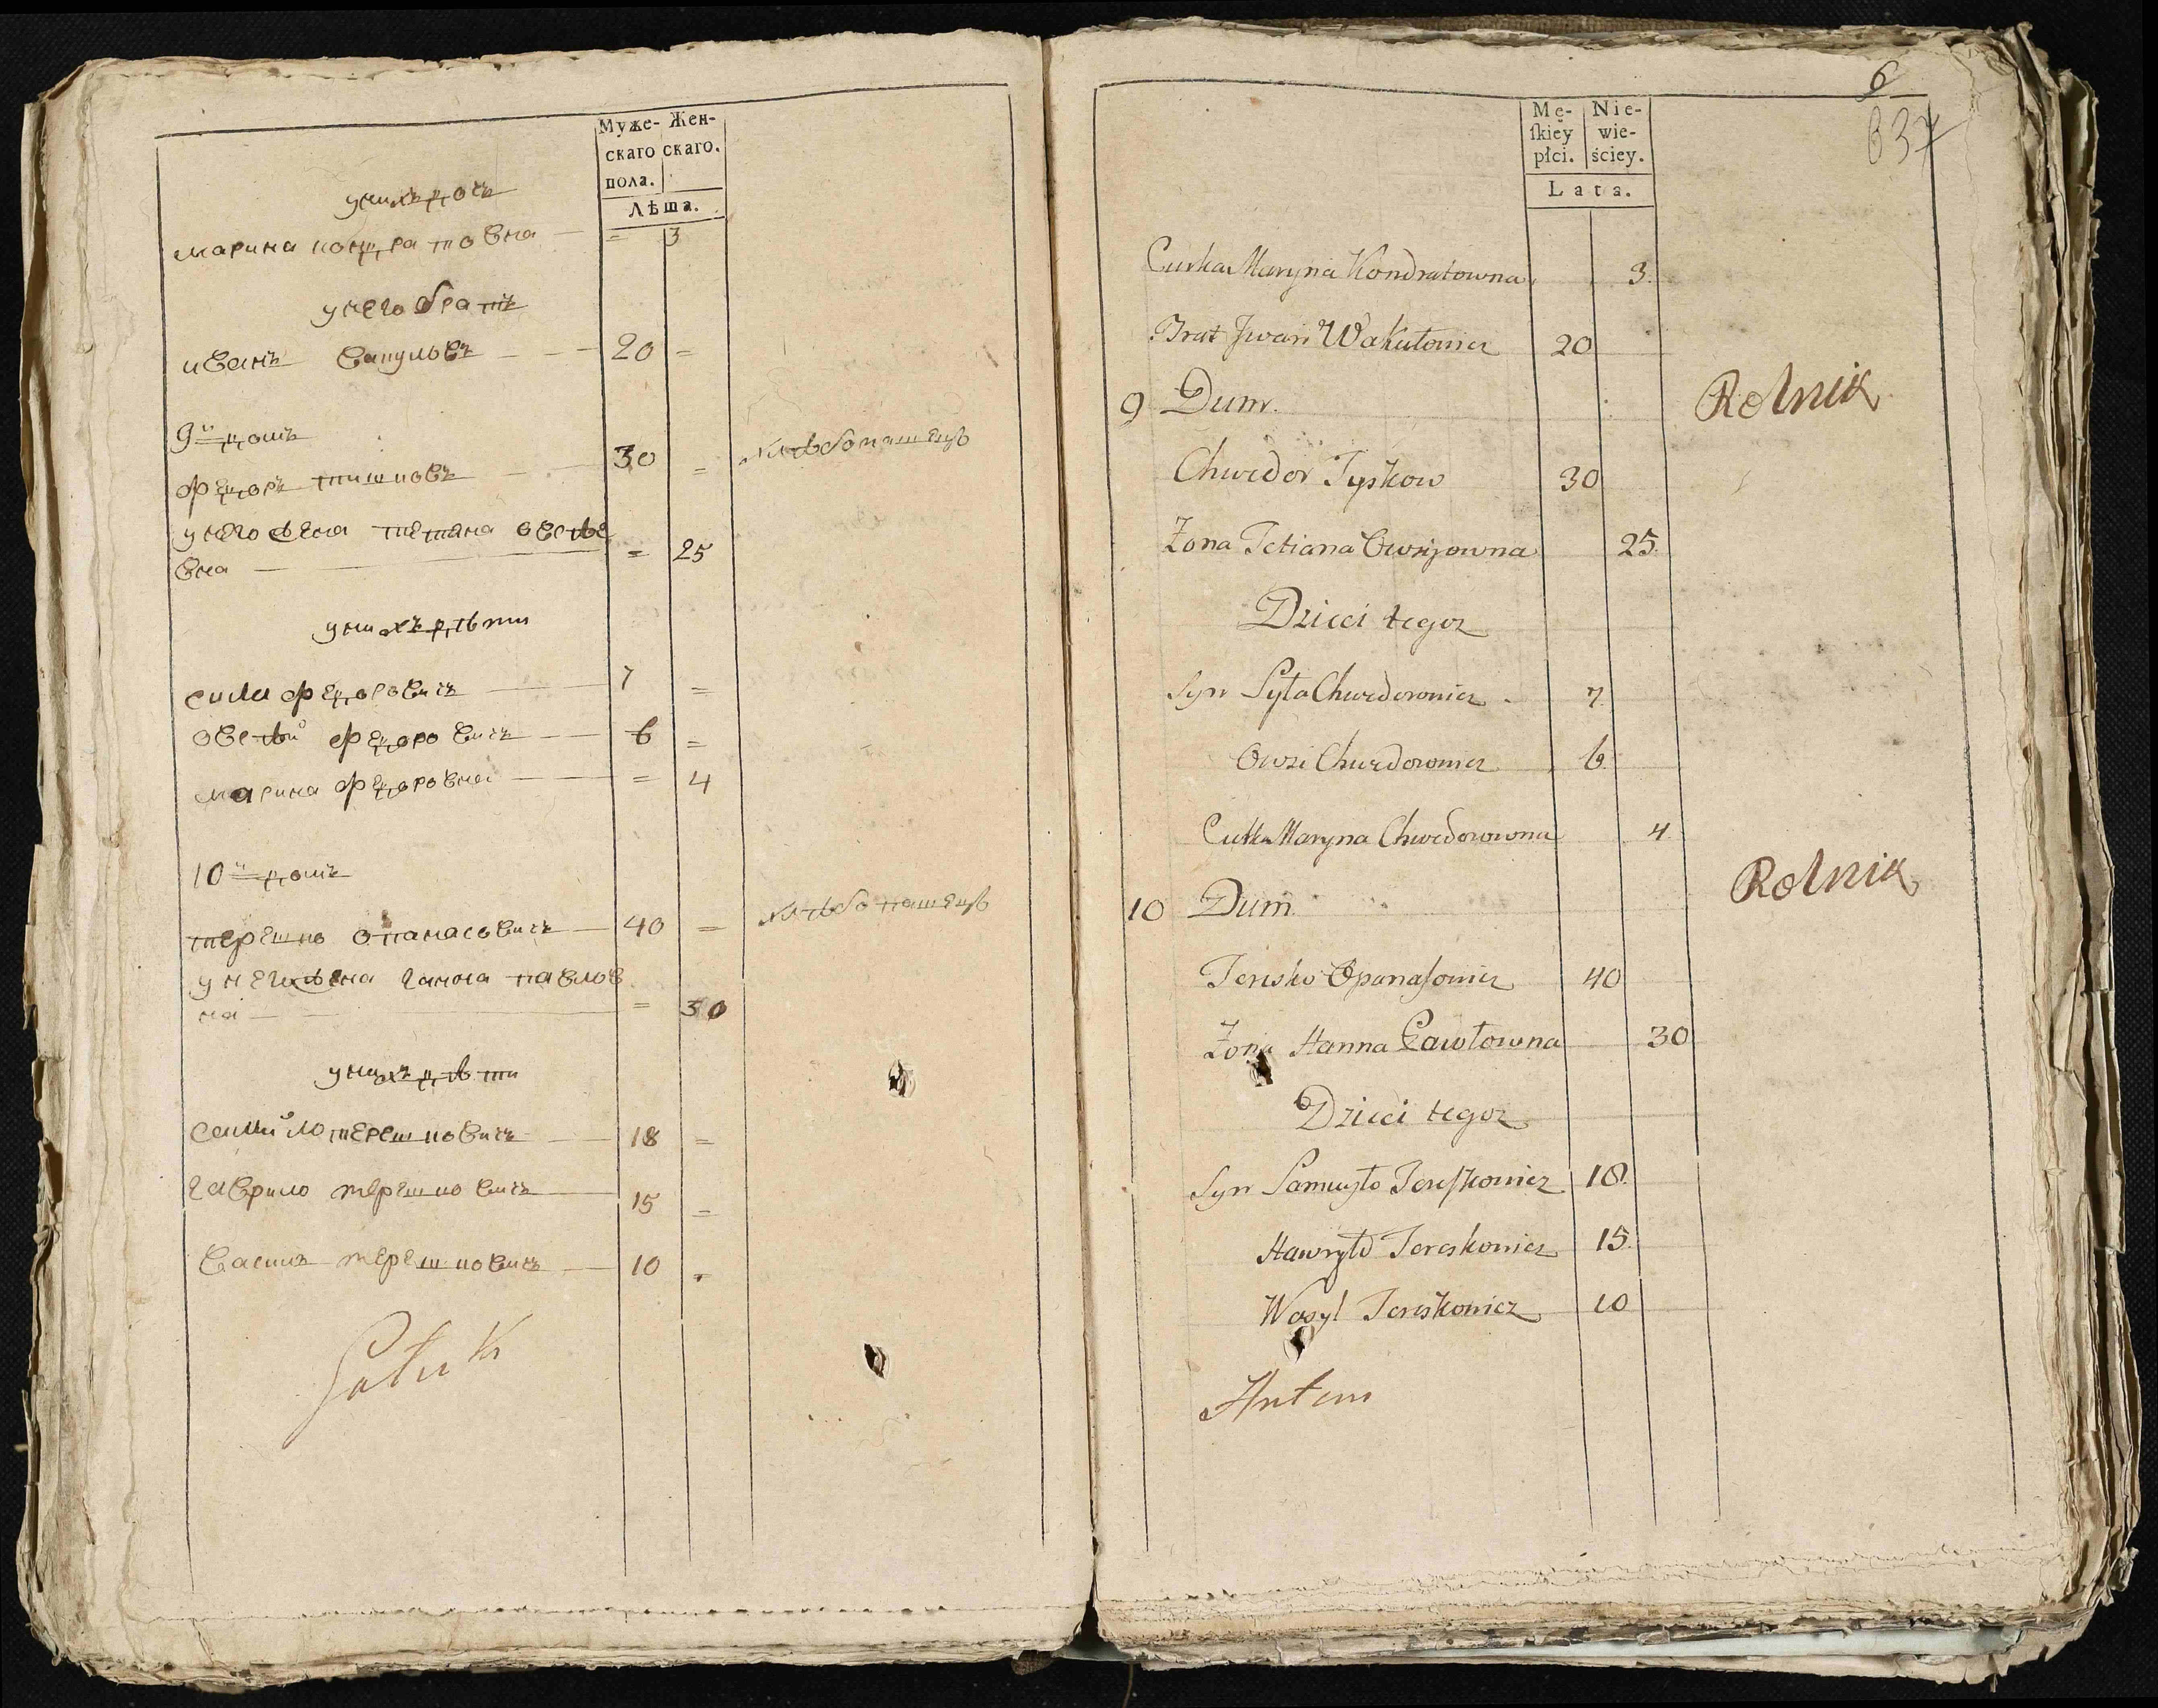 Муже- Жен-
скаго скаго.
пола.
Лѣта.
унихъ дочъ
марина кондратовна = 3
унего братъ
иванъ вакуловъ 20 =
9й домъ
федоръ тишковъ 30 = хлѣбопашецъ
унего жена тетяна овсѣе
вна = 25
унихъ дѣти
сила федоровичъ 7 =
овсѣй федоровичъ 6 =
марина федоровна = 4
10й домъ
терешко опанасовичъ 40 = хлѣбопашецъ
унего жена ганна павлов
на = 30
унихъ дѣти
самийло терешковичъ 18 =
гаврило терешковичъ 15 =
василь терешковичъ 10 =
6
637
Mę- Nie-
skiey wie-
płci. ściey.
Lata.
Curka Maryna Kondratowna 3.
Brat Jwan Wakułowicz 20
9 Dum. Rolnik
Chwedor Tyszkow 30
Żona Tetiana Owsijowna 25.
Dzieci tegoz
Syn Syła Chwedorowicz 7.
Owsi Chwedorowicz 6.
Curka Maryna Chwedorowna 4
10 Dum. Rolnik
Teresko Opanasowicz 40
Żona Hanna Pawłowna 30
Dzieci tegoz
Syn Samuyło Tereskowicz 18.
Hawryło Tereskowicz 15.
Wasyl Tereskowicz 10